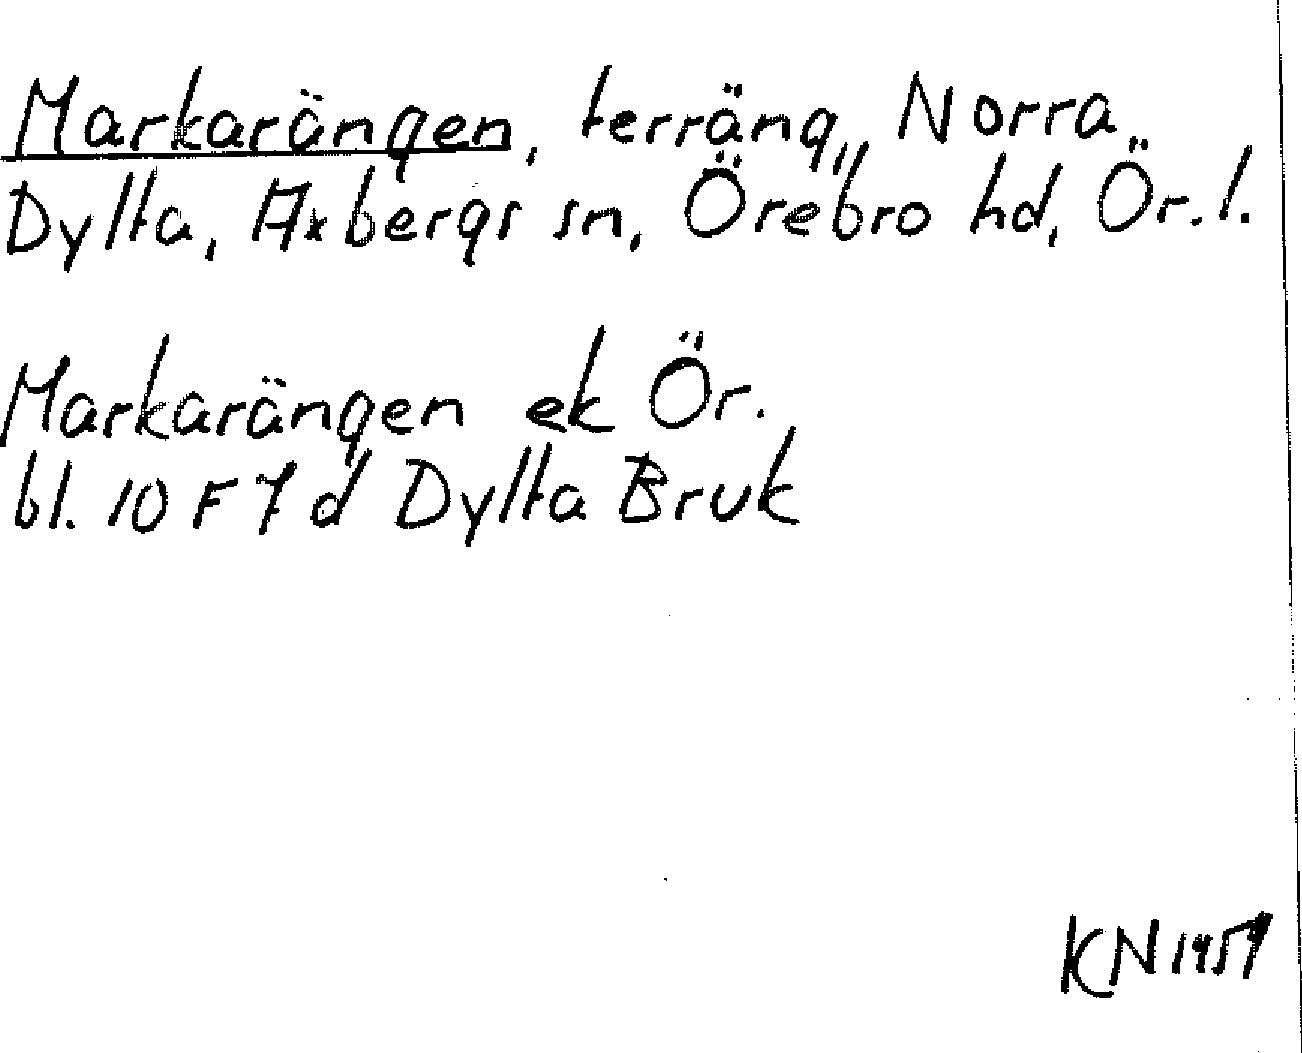 Markarängen, terräng, Norra
Dylta, Axbergs sn, Örebro hd, Ör. l.
Markarängen ek Ör.
bl. 10 F 7 d Dylta Bruk
KN 1959